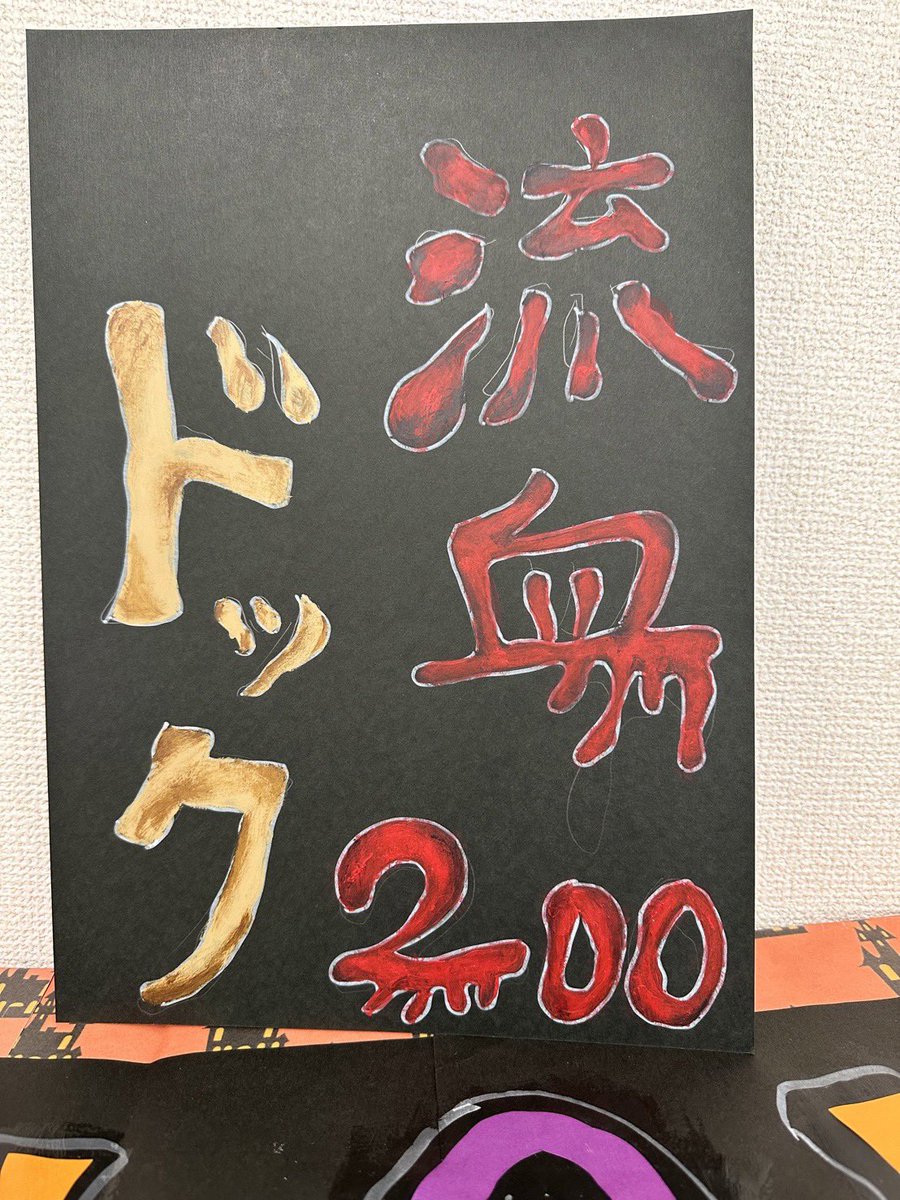 流血
ドック
200